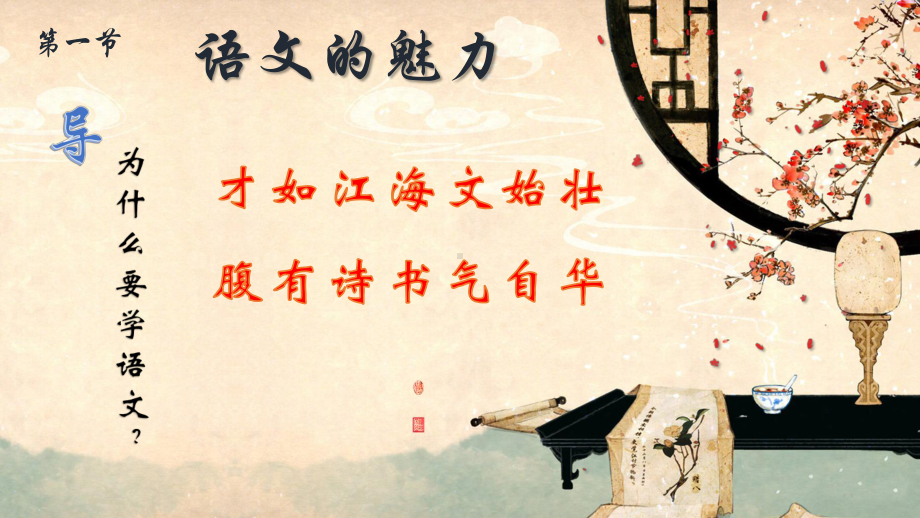 第一节
语文的魅力
导
为什么要学语文？
才如江海文始壮
腹有诗书气自华